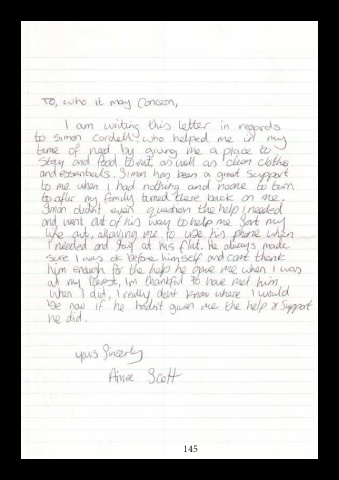 To, who it may Concern,
I am writing this letter in regards
to Simon Cordell, who helped me in my
time of need, by giving me a place to
stay and food to eat, as well as clean clothes
and essentials. Simon has been a great support
to me when I had nothing and noone to turn
to after my family turned there back on me.
Simon didn't even question the help I needed
and went out of his way to help me sort my
life out, allowing me to use his phone when
I needed and stay at his flat. He always made
sure I was ok before himself and cant thank
him enough for the help he gave me when I was
at my lowest, Im thankful to have met him
when I did, I really dont know where I would
be now if he hadn't given me the help & support
he did.
yours Sincerly
Aimee Scott
145